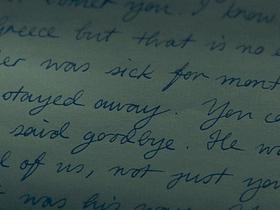 you. I know
Greece but that is no e
was sick for mont
stayed away. You co
said goodbye. He wa
of us, not just you
was his way